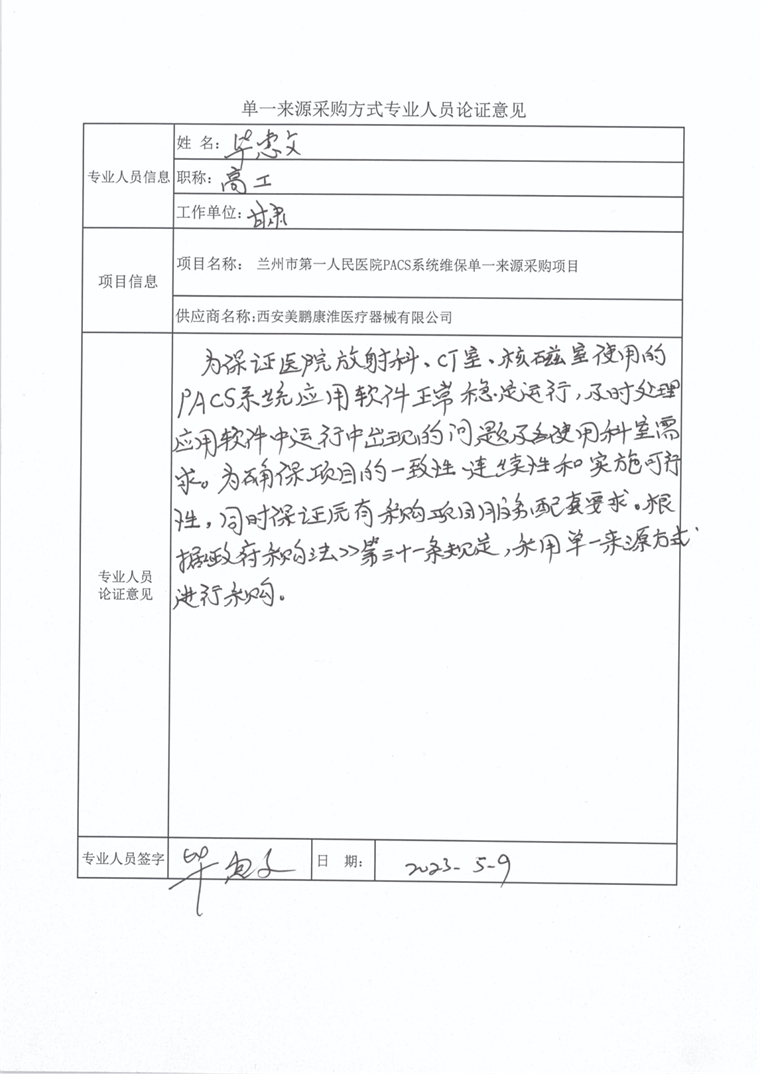 单一来源采购方式专业人员论证意见
专业人员信息
姓 名：毕惠文
职称：高工
工作单位：甘肃
项目信息
项目名称： 兰州市第一人民医院PACS系统维保单一来源采购项目
供应商名称:西安美鹏康淮医疗器械有限公司
专业人员
论证意见
为保证医院放射科、CT室、核磁室使用的
PACS系统应用软件正常稳定运行，及时处理
应用软件中运行中出现的问题及使用科室需
求。为确保项目的一致性、连续性和实施可行
性，同时保证原有采购项目服务配套要求。根
据《政府采购法》第三十一条规定，采用单一来源方式
进行采购。
专业人员签字
毕惠文
日 期：
2023-5-9